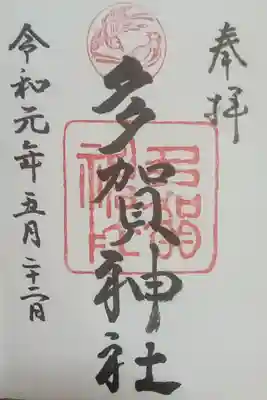 奉拝
多賀神社
令和元年五月二十二日
多賀神社